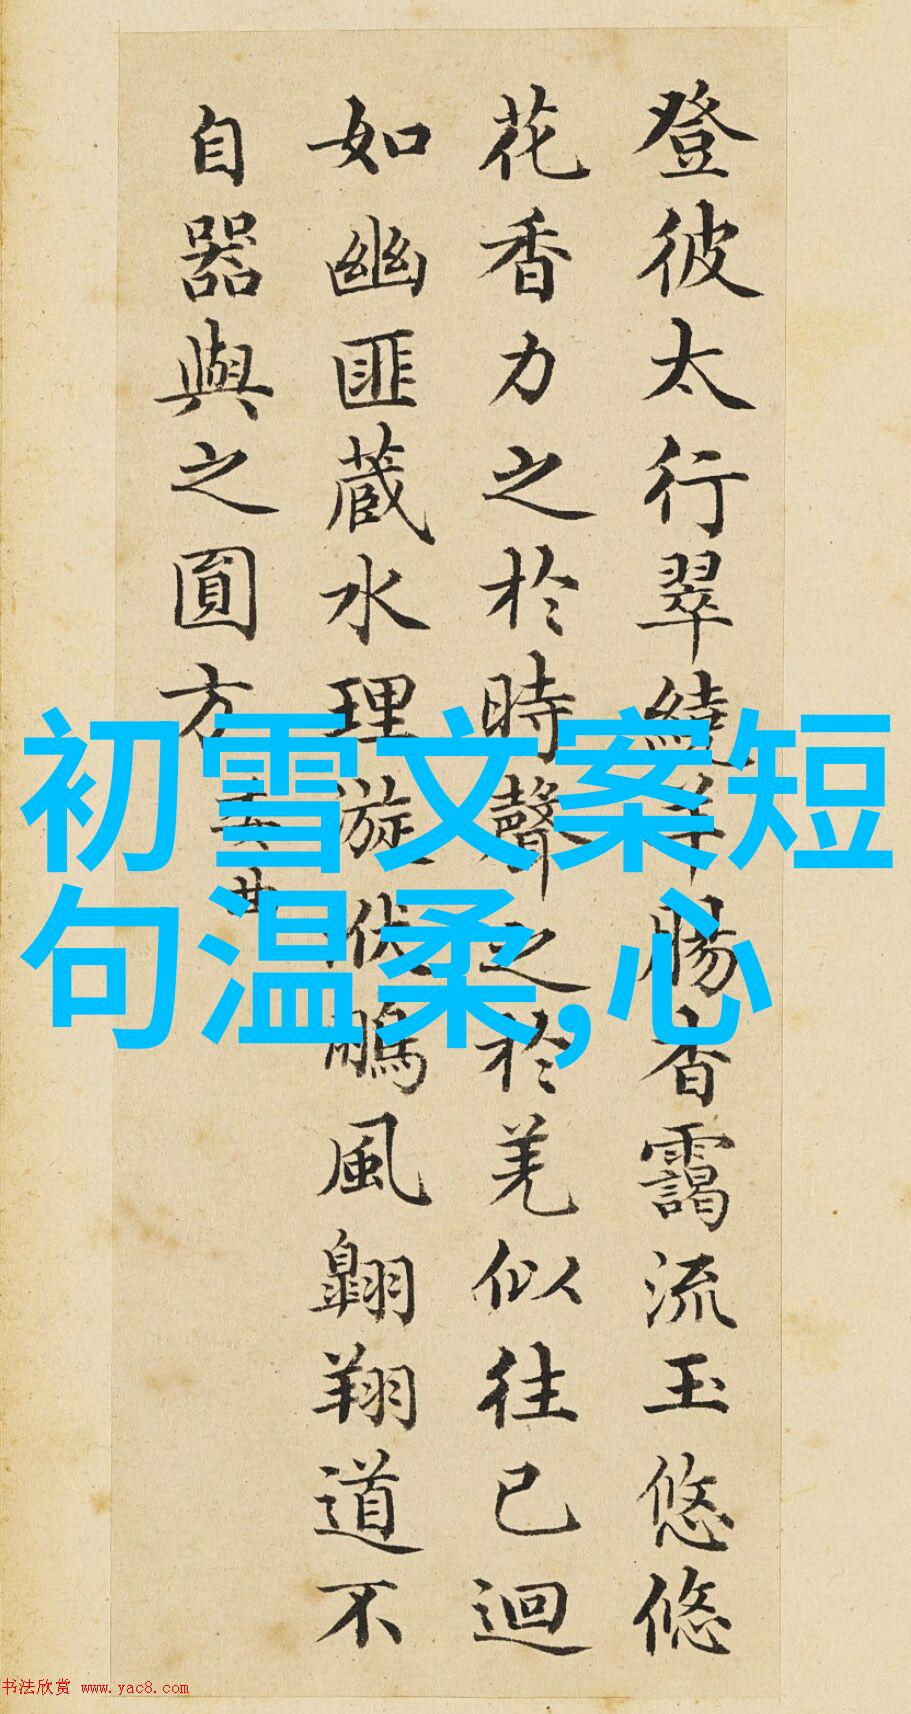 登彼太行翠繞羊腸杳靄流玉悠悠
花香力之於時聲之於羌似往已迴
如幽匪蔵水理漩洑鵬風翺翔道不
自器與之圓方
委曲
初雪文案短
句温柔,心
书法欣赏 www.yac8.com